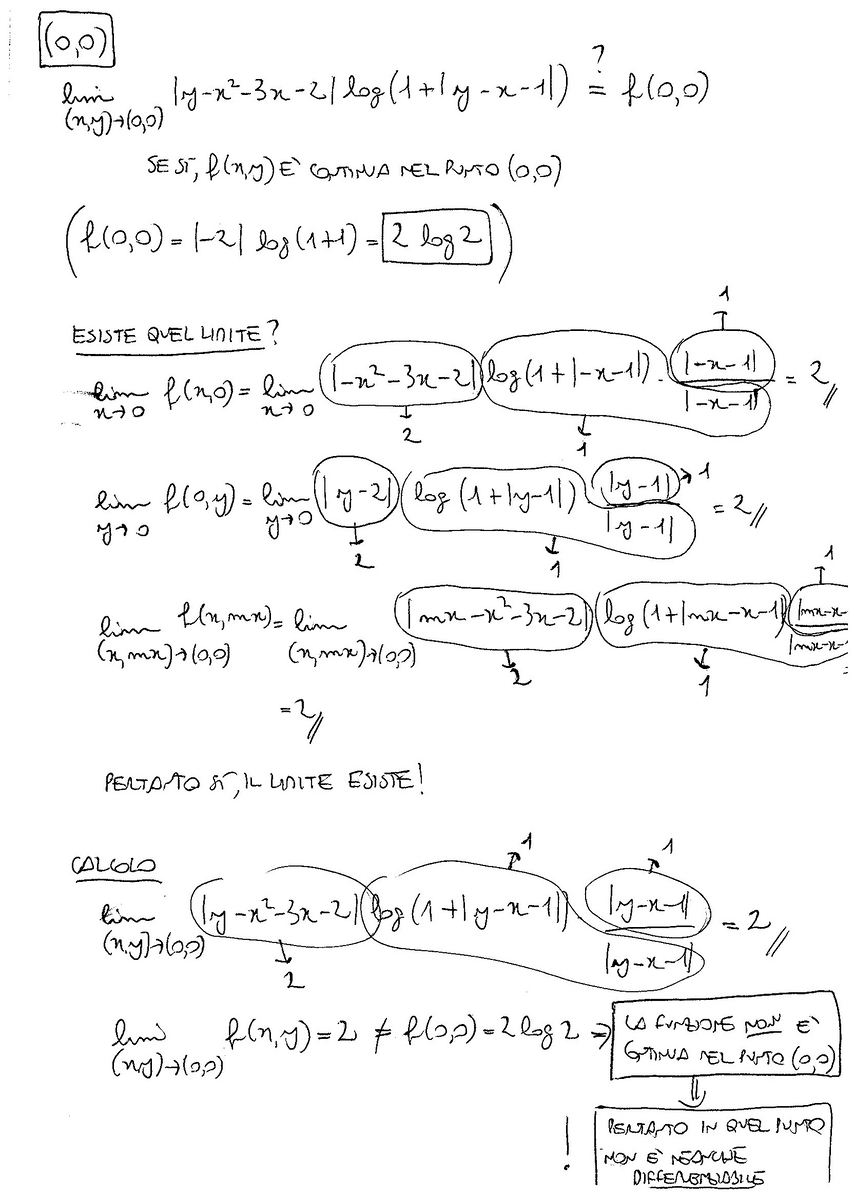 (0,0)
lim (x,y)→(0,0) |y-x²-3x-2| log(1+|y-x-1|) =? f(0,0)
SE SÌ, f(x,y) È CONTINUA NEL PUNTO (0,0)
(f(0,0) = |-2| log(1+1) = 2 log 2)
ESISTE QUEL LIMITE?
1
lim x→0 f(x,0) = lim x→0 |-x²-3x-2| log(1+|-x-1|) · |-x-1| / |-x-1| = 2
2 1
lim y→0 f(0,y) = lim y→0 |y-2| log(1+|y-1|) |y-1| / |y-1| → 1 = 2
2 1
1
lim (x,mx)→(0,0) f(x,mx) = lim (x,mx)→(0,0) |mx-x²-3x-2| log(1+|mx-x-1|) |mx-x- / |mx-x-1 =
2 1
= 2
PERTANTO SÌ, IL LIMITE ESISTE!
CALCOLO
1 1
lim (x,y)→(0,0) |y-x²-3x-2| log(1+|y-x-1|) |y-x-1| / |y-x-1| = 2
2
lim (x,y)→(0,0) f(x,y) = 2 ≠ f(0,0) = 2 log 2 ⇒ LA FUNZIONE NON È
CONTINUA NEL PUNTO (0,0)
! PERTANTO IN QUEL PUNTO
NON È NEANCHE
DIFFERENZIABILE